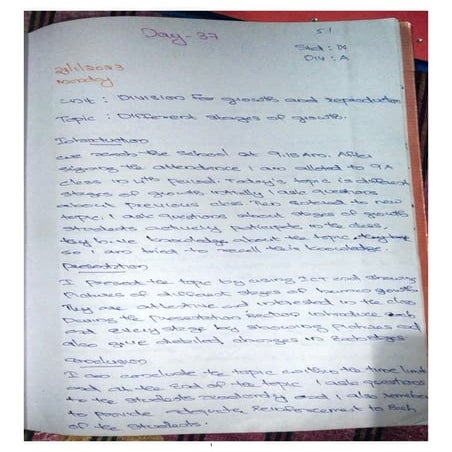 Day - 37
5.1
Std : IX
Div : A
Monday
Unit : Division for growth and reproduction
Topic : Different stages of growth.
Introduction
we reach the School at 9:15 Am. After
signing the attendance I am alloted to 9 A
class in period. Today's topic is different
stages of growth. Initially I ask questions
about previous class. Then entered to new
topic. I ask questions about stages of growth
students actively participate in the class,
they have knowledge about the topic,
so I am tried to recall their knowledge.
Presentation
I present the topic by using ICT and showing
Pictures of different stages of human growth.
They are active and interested in the class
During the Presentation section introduce each
and every stage by showing pictures and
also give detailed changes in
Conclusion
I am conclude the topic within the time limit
and at the end of the topic I ask questions
to the students randomly and I also remember
to provide adequate Reinforcement to Each
of the students.
1